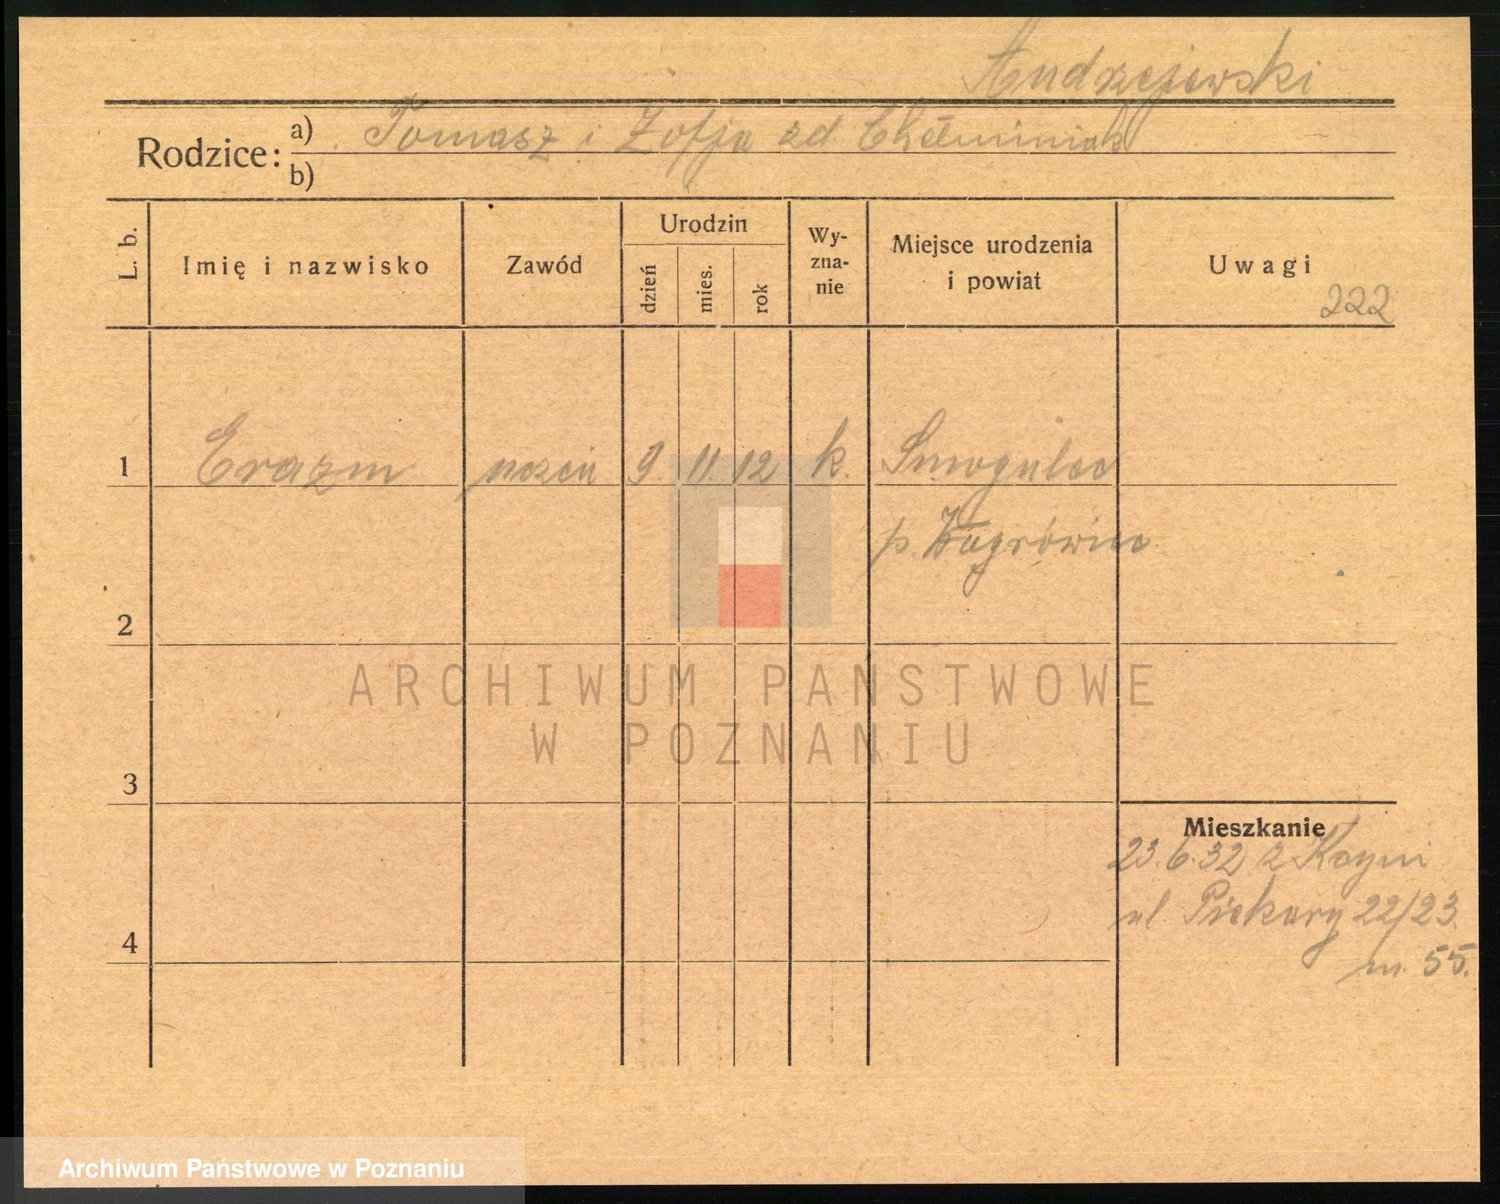 Andrzejewski
Rodzice: a) Tomasz i Zofja zd. Chełminiak
b)
L. b.
Imię i nazwisko
Zawód
Urodzin
dzień
mies.
rok
Wy-
zna-
nie
Miejsce urodzenia
i powiat
Uwagi
222
1 Erazm uczeń 9. 11. 12 k. Smogulec
p. Wągrówiec
2
3
4
Mieszkanie
23.6.32 z Kcyni
ul. Piekary 22/23.
m. 55.
ARCHIWUM PAŃSTWOWE
W POZNANIU
Archiwum Państwowe w Poznaniu